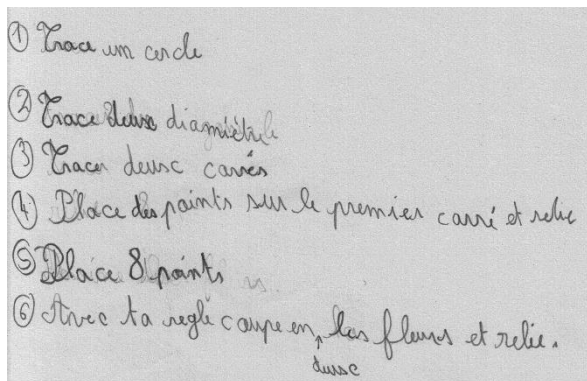 ① Trace um cercle
② Trace deux diamiétre
③ Tracer deux carrés
④ Place des points sur le premier carré et relie
⑤ Place 8 points
⑥ Avec ta regle coupe en les fleurs et relie.
↑
deux